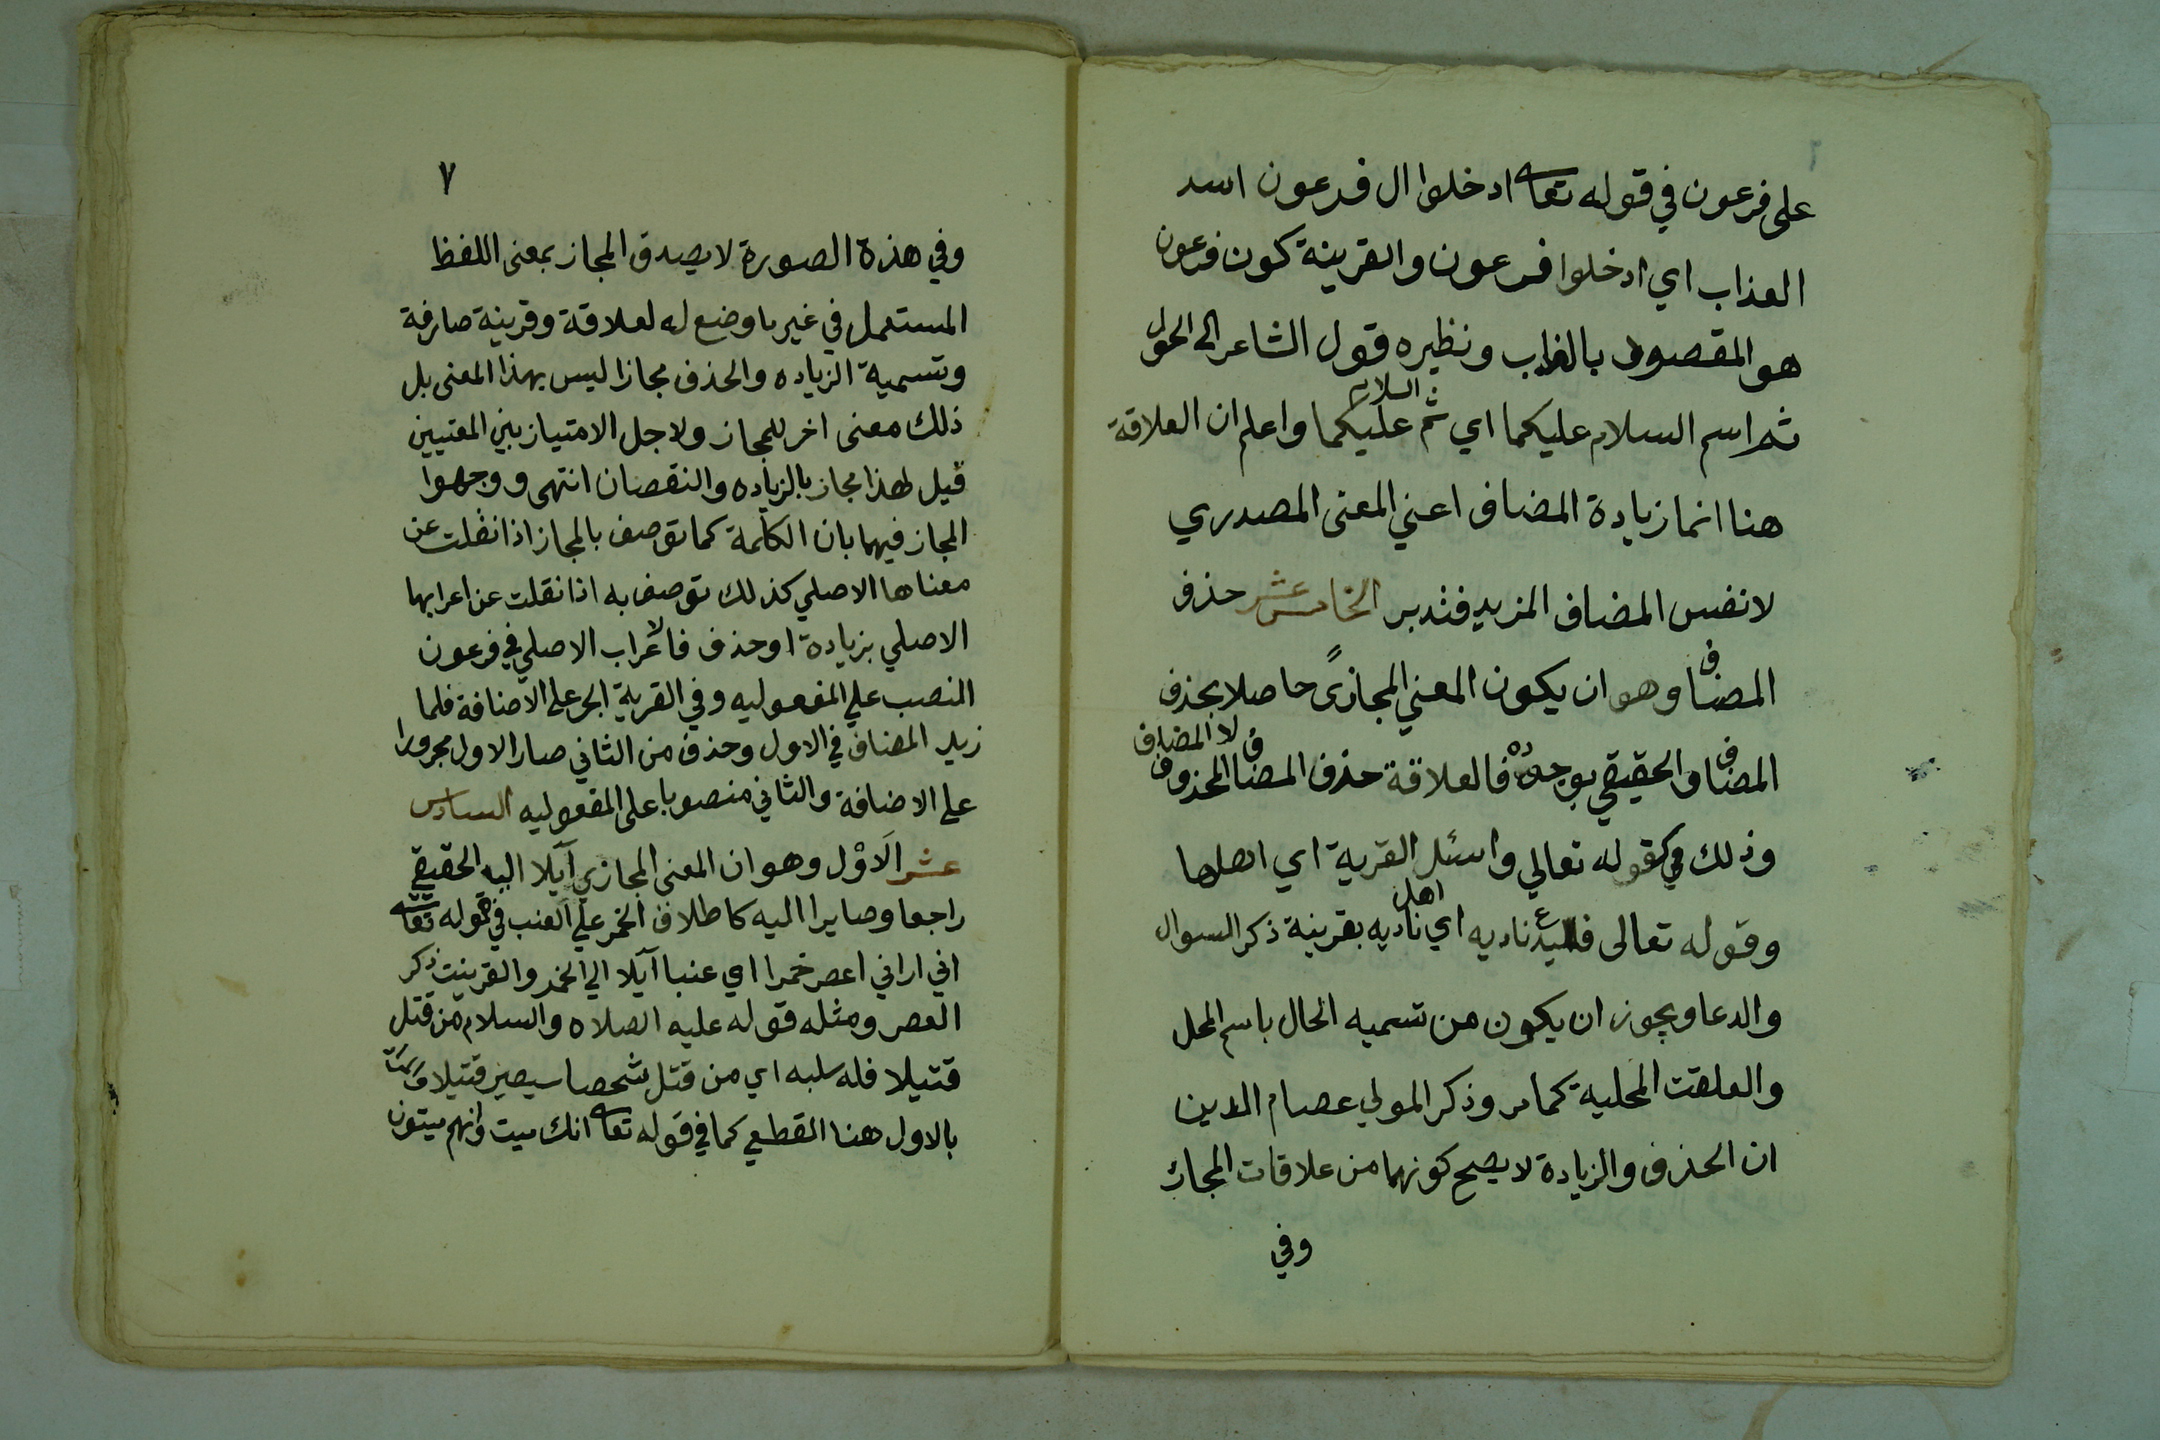 ٦
على فرعون في قوله تعا ادخلوا ال فرعون اسد
العذاب اي ادخلوا فرعون والقرينة كون فرعون
هو المقصود بالعذاب ونظيره قول الشاعر الى الحول
ثم اسم السلام عليكما اي ثم السلام عليكما واعلم ان العلاقة
هنا انما زيادة المضاف اعني المعنى المصدري
لا نفس المضاف المزيد فتدبر الخامس عشر حذف
المضاف وهو ان يكون المعني المجازيً حاصلا بحذف
المضاف والحقيقي بوجوده فالعلاقة حذف المضاف لا المضاف المحذوف
وذلك في كقوله تعالي واسئل القرية اي اهلها
وقوله تعالى فليدع ناديه اي اهل ناديه بقرينة ذكر السوال
والدعا ويجوز ان يكون من تسميه الحال باسم المحل
والعلقت المحلية كما مر وذكر المولي عصام الدين
ان الحذف والزيادة لا يصح كونهما من علاقات المجاز
وفي
٧
وفي هذة الصورة لا يصدق المجاز بمعنى اللفظ
المستعمل في غير ما وضع له لعلاقة وقرينة صارفة
وتسمية الزياده والحذف مجازا ليس بهذا المعنى بل
ذلك معنى اخر للمجاز ولاجل الامتياز بين المعنيين
قيل لهذا مجاز بالزياده والنقصان انتهى ووجهوا
المجاز فيهما بان الكلمة كما توصف بالمجاز اذا نقلت عن
معناها الاصلي كذلك توصف به اذا نقلت عن اعرابها
الاصلي بزيادة او حذف فالاعراب الاصلي في فرعون
النصب علي المفعوليه وفي القرية الجر علي الاضافة فلما
زيد المضاف في الاول وحذف من الثاني صار الاول مجرورا
علي الاضافة والثاني منصوبا على المفعوليه السادس
عشر الَاوْل وهو ان المعنى المجازي آيلا اليه الحقيقي
راجعا وصايرا اليه كاطلاق الخمر علي العنب في قوله تعا
اني اراني اعصر خمرا اي عنبا آيلا الي الخمر والقرينت ذكر
العصر ومثله قوله عليه الصلاه والسلام من قتل
قتيلا فله سلبه اي من قتل شحصا سيصير قتيلا
بالاول هنا القطعي كما في قوله تعا انك ميت وانهم ميتون